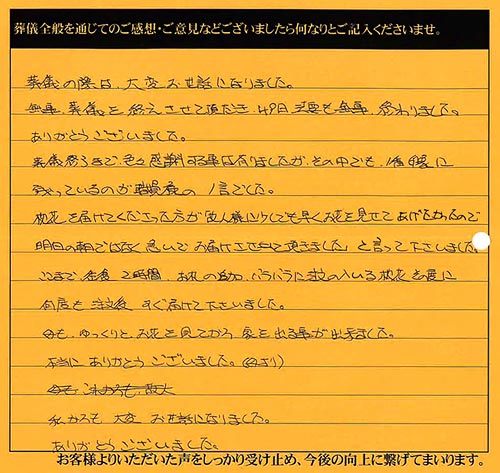 葬儀全般を通じてのご感想・ご意見などございましたら何なりとご記入くださいませ。
葬儀の際は、大変お世話になりました。
無事、葬儀を終えさせて頂き、49日法要も無事、終わりました。
ありがとうございました。
葬儀終るまで、色々感謝する事は有りましたが、その中でも、1番 に
残っているのが の1言でした。
枕花を届けてくださった方が「故人様に少しでも早くお花を見せてあげたかったので
明日の朝ではなく急いでお届けさせて頂きました」と言って下さいました。
ここまで、 2時間、お礼の 、バラバラに の入いる枕花を
何度も 後、すぐ届けて下さいました。
母も、ゆっくりとお花を見てから家を出る事が出来ました。
本当にありがとうございました。(母より)
私からも大変お世話になりました。
ありがとうございました。
お客様よりいただいた声をしっかり受け止め、今後の向上に繋げてまいります。